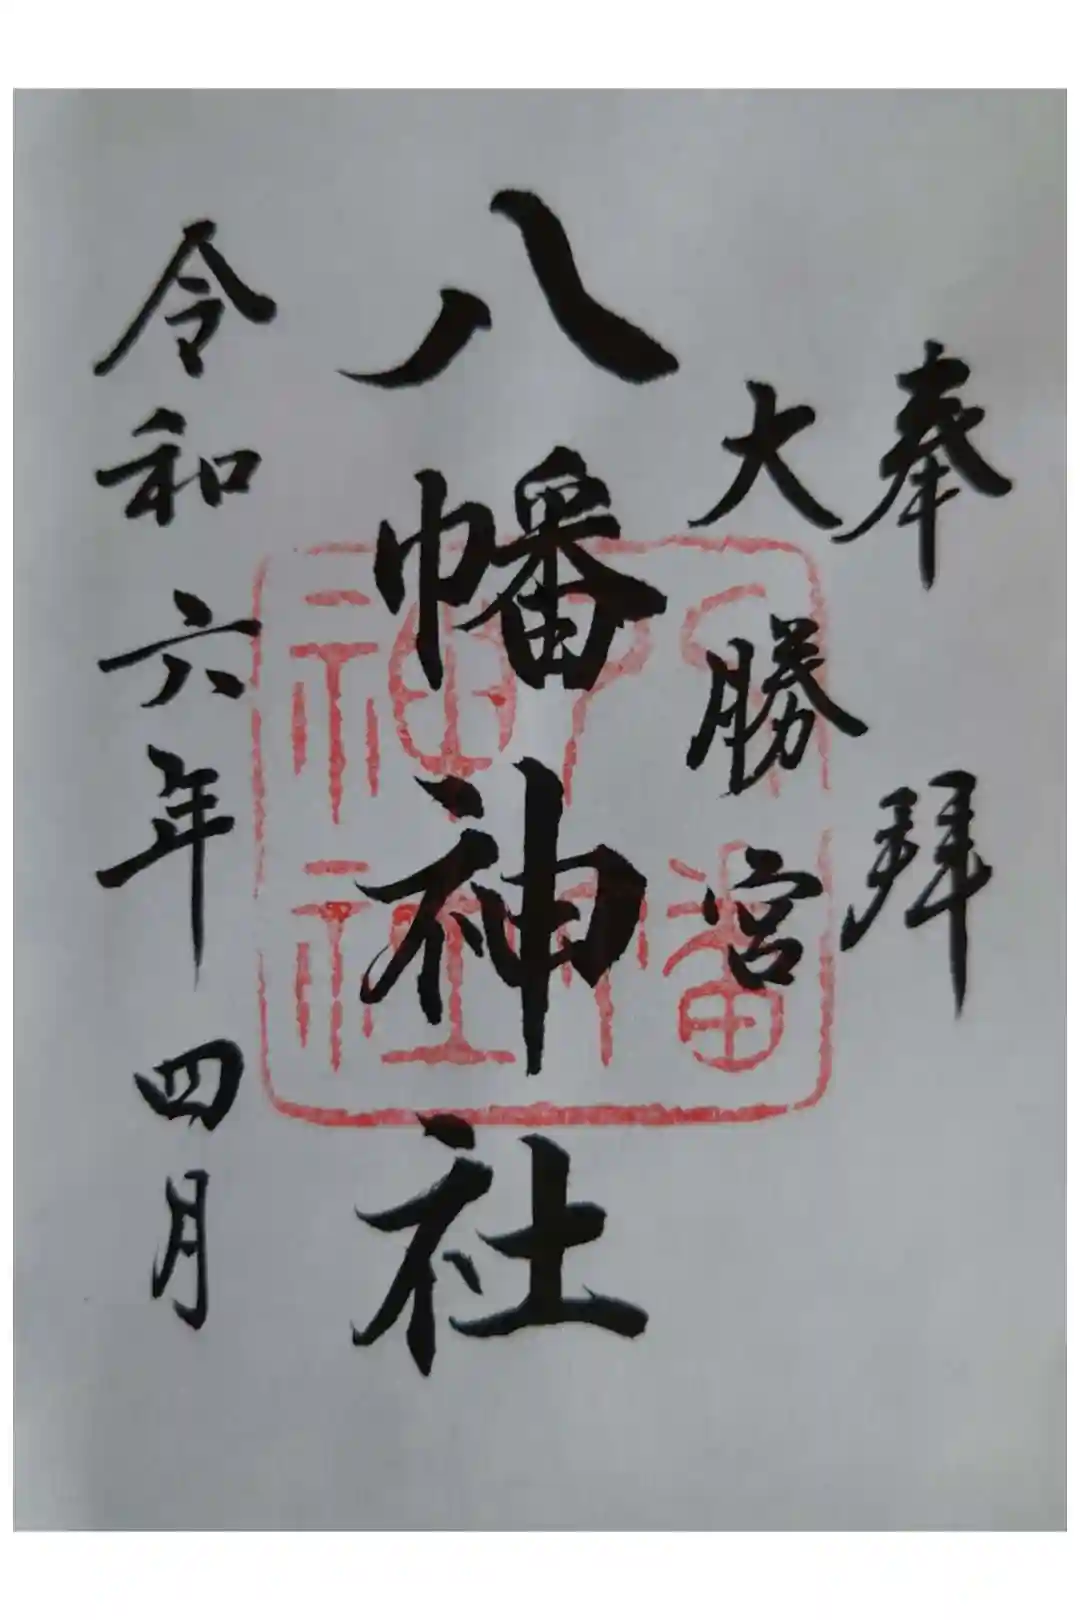 奉拝
大勝宮
八幡神社
令和六年四月
八幡
神社